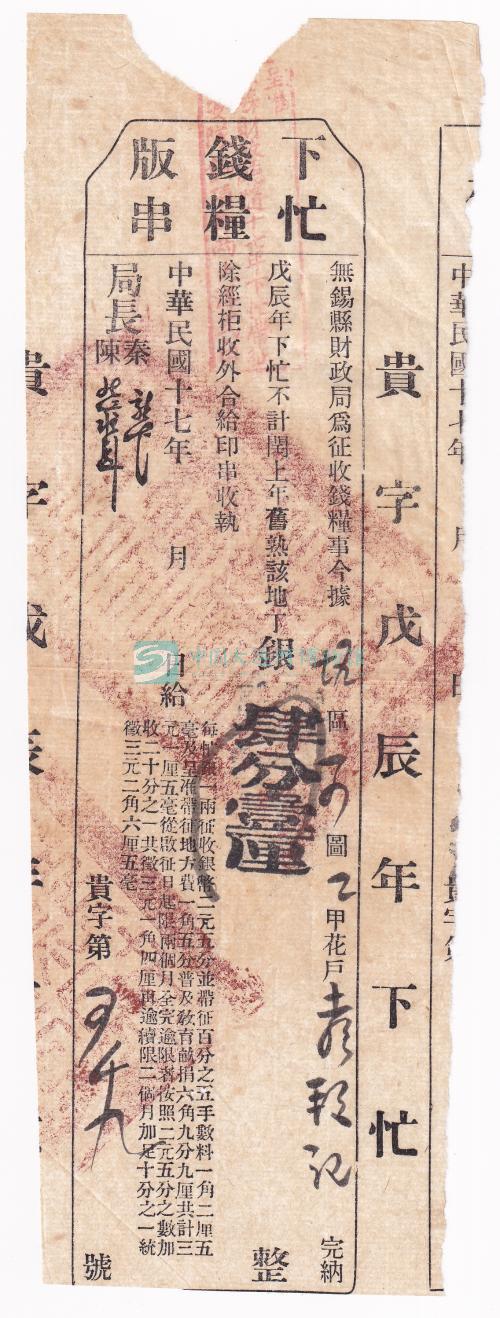 下忙
錢糧
版串
無錫縣財政局爲征收錢糧事今據
區
圖
甲花戶
完納
戊辰年下忙不計閏上年舊熟該地丁銀
肆分壹厘
整
除經柜收外合給印串收執
中華民國十七年 月 日給
局長
秦
陳
每忙銀一兩征收銀幣二元五分並帶征百分之五手數料一角二厘五
毫及呈准帶征地方費一角五分普及敎育畝捐六角九分九厘共計三
元一厘五毫從啟征日起限兩個月全完逾限者按照二元五分之數加
收二十分之一共徵三元一角四厘再逾續限二個月加足十分之一統
徵三元二角六厘五毫
貴字第
號
貴字戊辰年下忙
貴字戊辰年
中華民國十七年 月